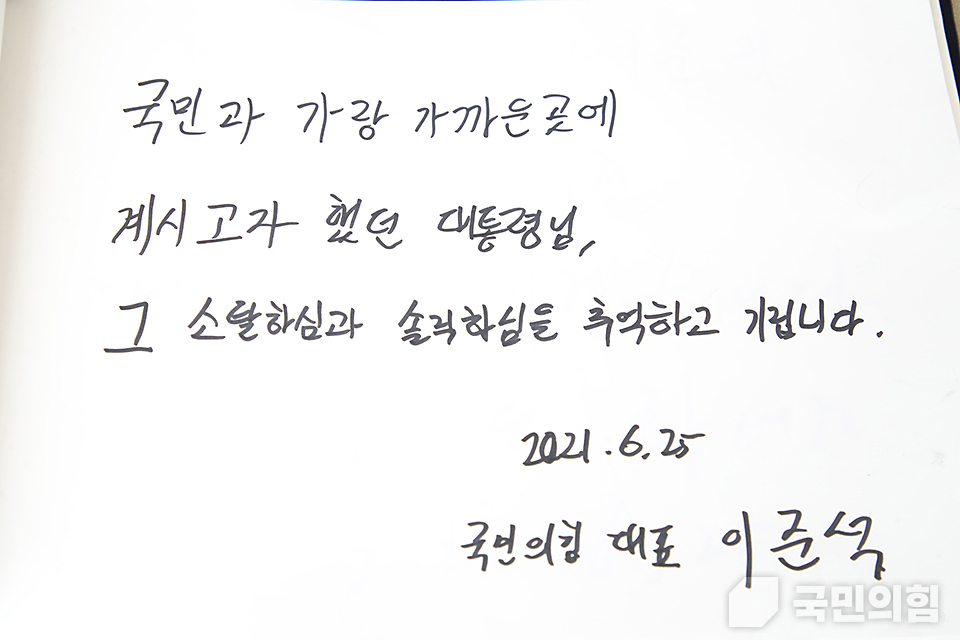 국민과 가장 가까운 곳에
계시고자 했던 대통령님,
그 소탈하심과 솔직하심을 추억하고 기립니다.
2021.6.25
국민의힘 대표 이준석
국민의힘